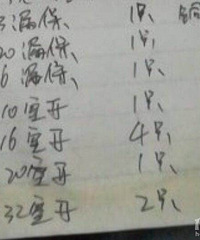 漏保、 1只、
20漏保、 1只、
6漏保、 1只、
10空开 1只、
16空开 4只、
20空开 1只、
32空开 2只、